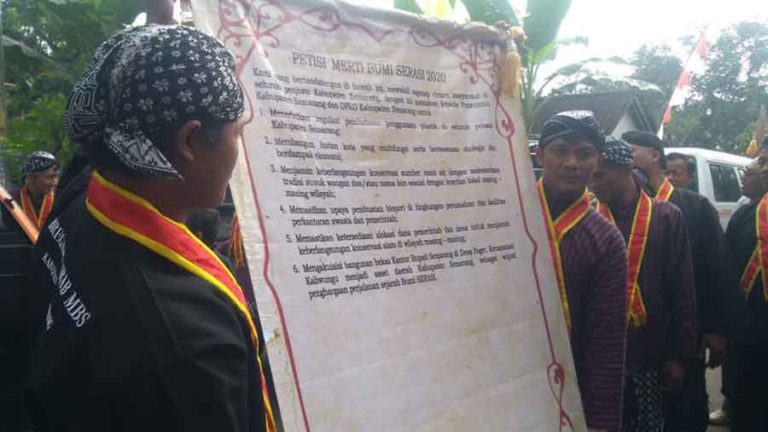 PETISI MERTI BUMI SERASI 2020
Kami yang bertandatangan di bawah ini, mewakili segenap elemen masyarakat di
seluruh penjuru Kabupaten Semarang, dengan ini menuntut kepada Pemerintah
Kabupaten Semarang dan DPRD Kabupaten Semarang untuk:
1. Menerbitkan regulasi pembatasan penggunaan plastik di seluruh
Kabupaten Semarang;
2. Membangun hutan kota yang multifungsi serta berwawasan ekologis dan
berdampak ekonomi;
3. Menjamin keberlangsungan konservasi sumber mata air dengan
tradisi susuk wangan dan/atau nama lain sesuai dengan kearifan lokal masing -
masing wilayah;
4. Memasifkan upaya pembuatan biopori di lingkungan perumahan dan fasilitas
perkantoran swasta dan pemerintah;
5. Memastikan ketersediaan alokasi dana pemerintah dan desa untuk
keberlangsungan konservasi alam di wilayah masing - masing;
6. Mengakuisisi bangunan bekas Kantor Bupati Semarang di Desa Pager, Kecamatan
Kaliwungu menjadi aset daerah Kabupaten Semarang, sebagai wujud
penghargaan perjalanan sejarah Bumi SERASI.
MBS